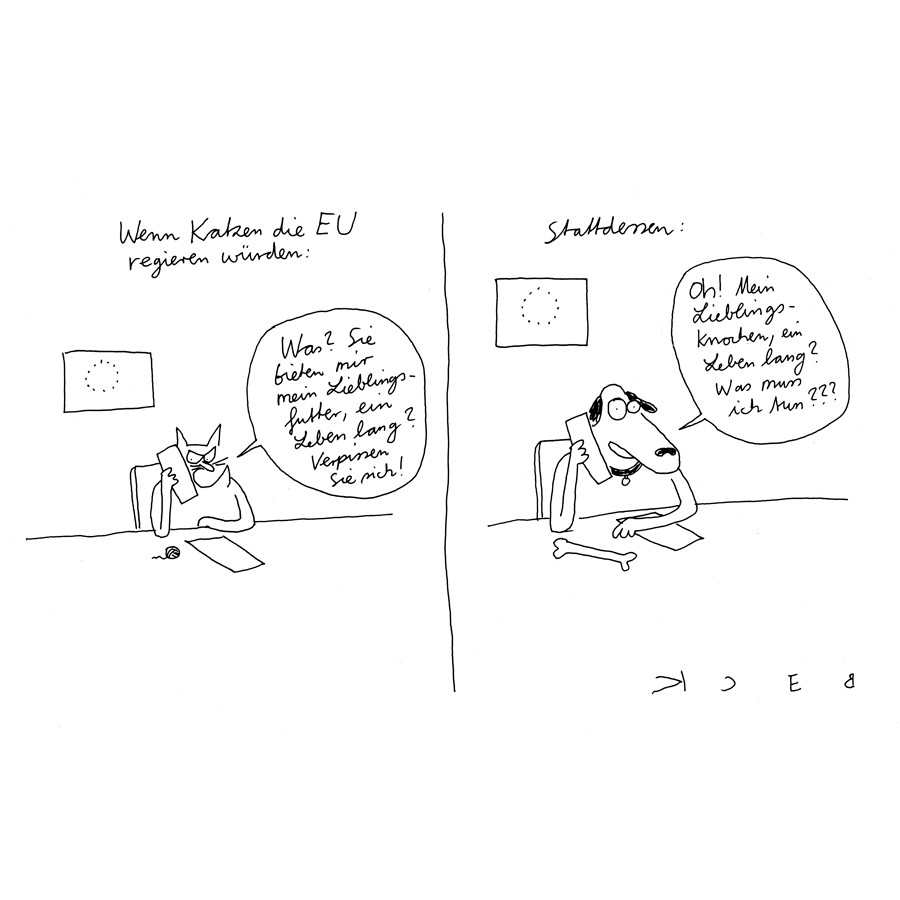 Wenn Katzen die EU
regieren würden:
Was? Sie
bieten mir
mein Lieblings-
futter, ein
Leben lang?
Verpissen
Sie sich!
Stattdessen:
Oh! Mein
Lieblings-
knochen, ein
Leben lang?
Was muss
ich tun???
BECK